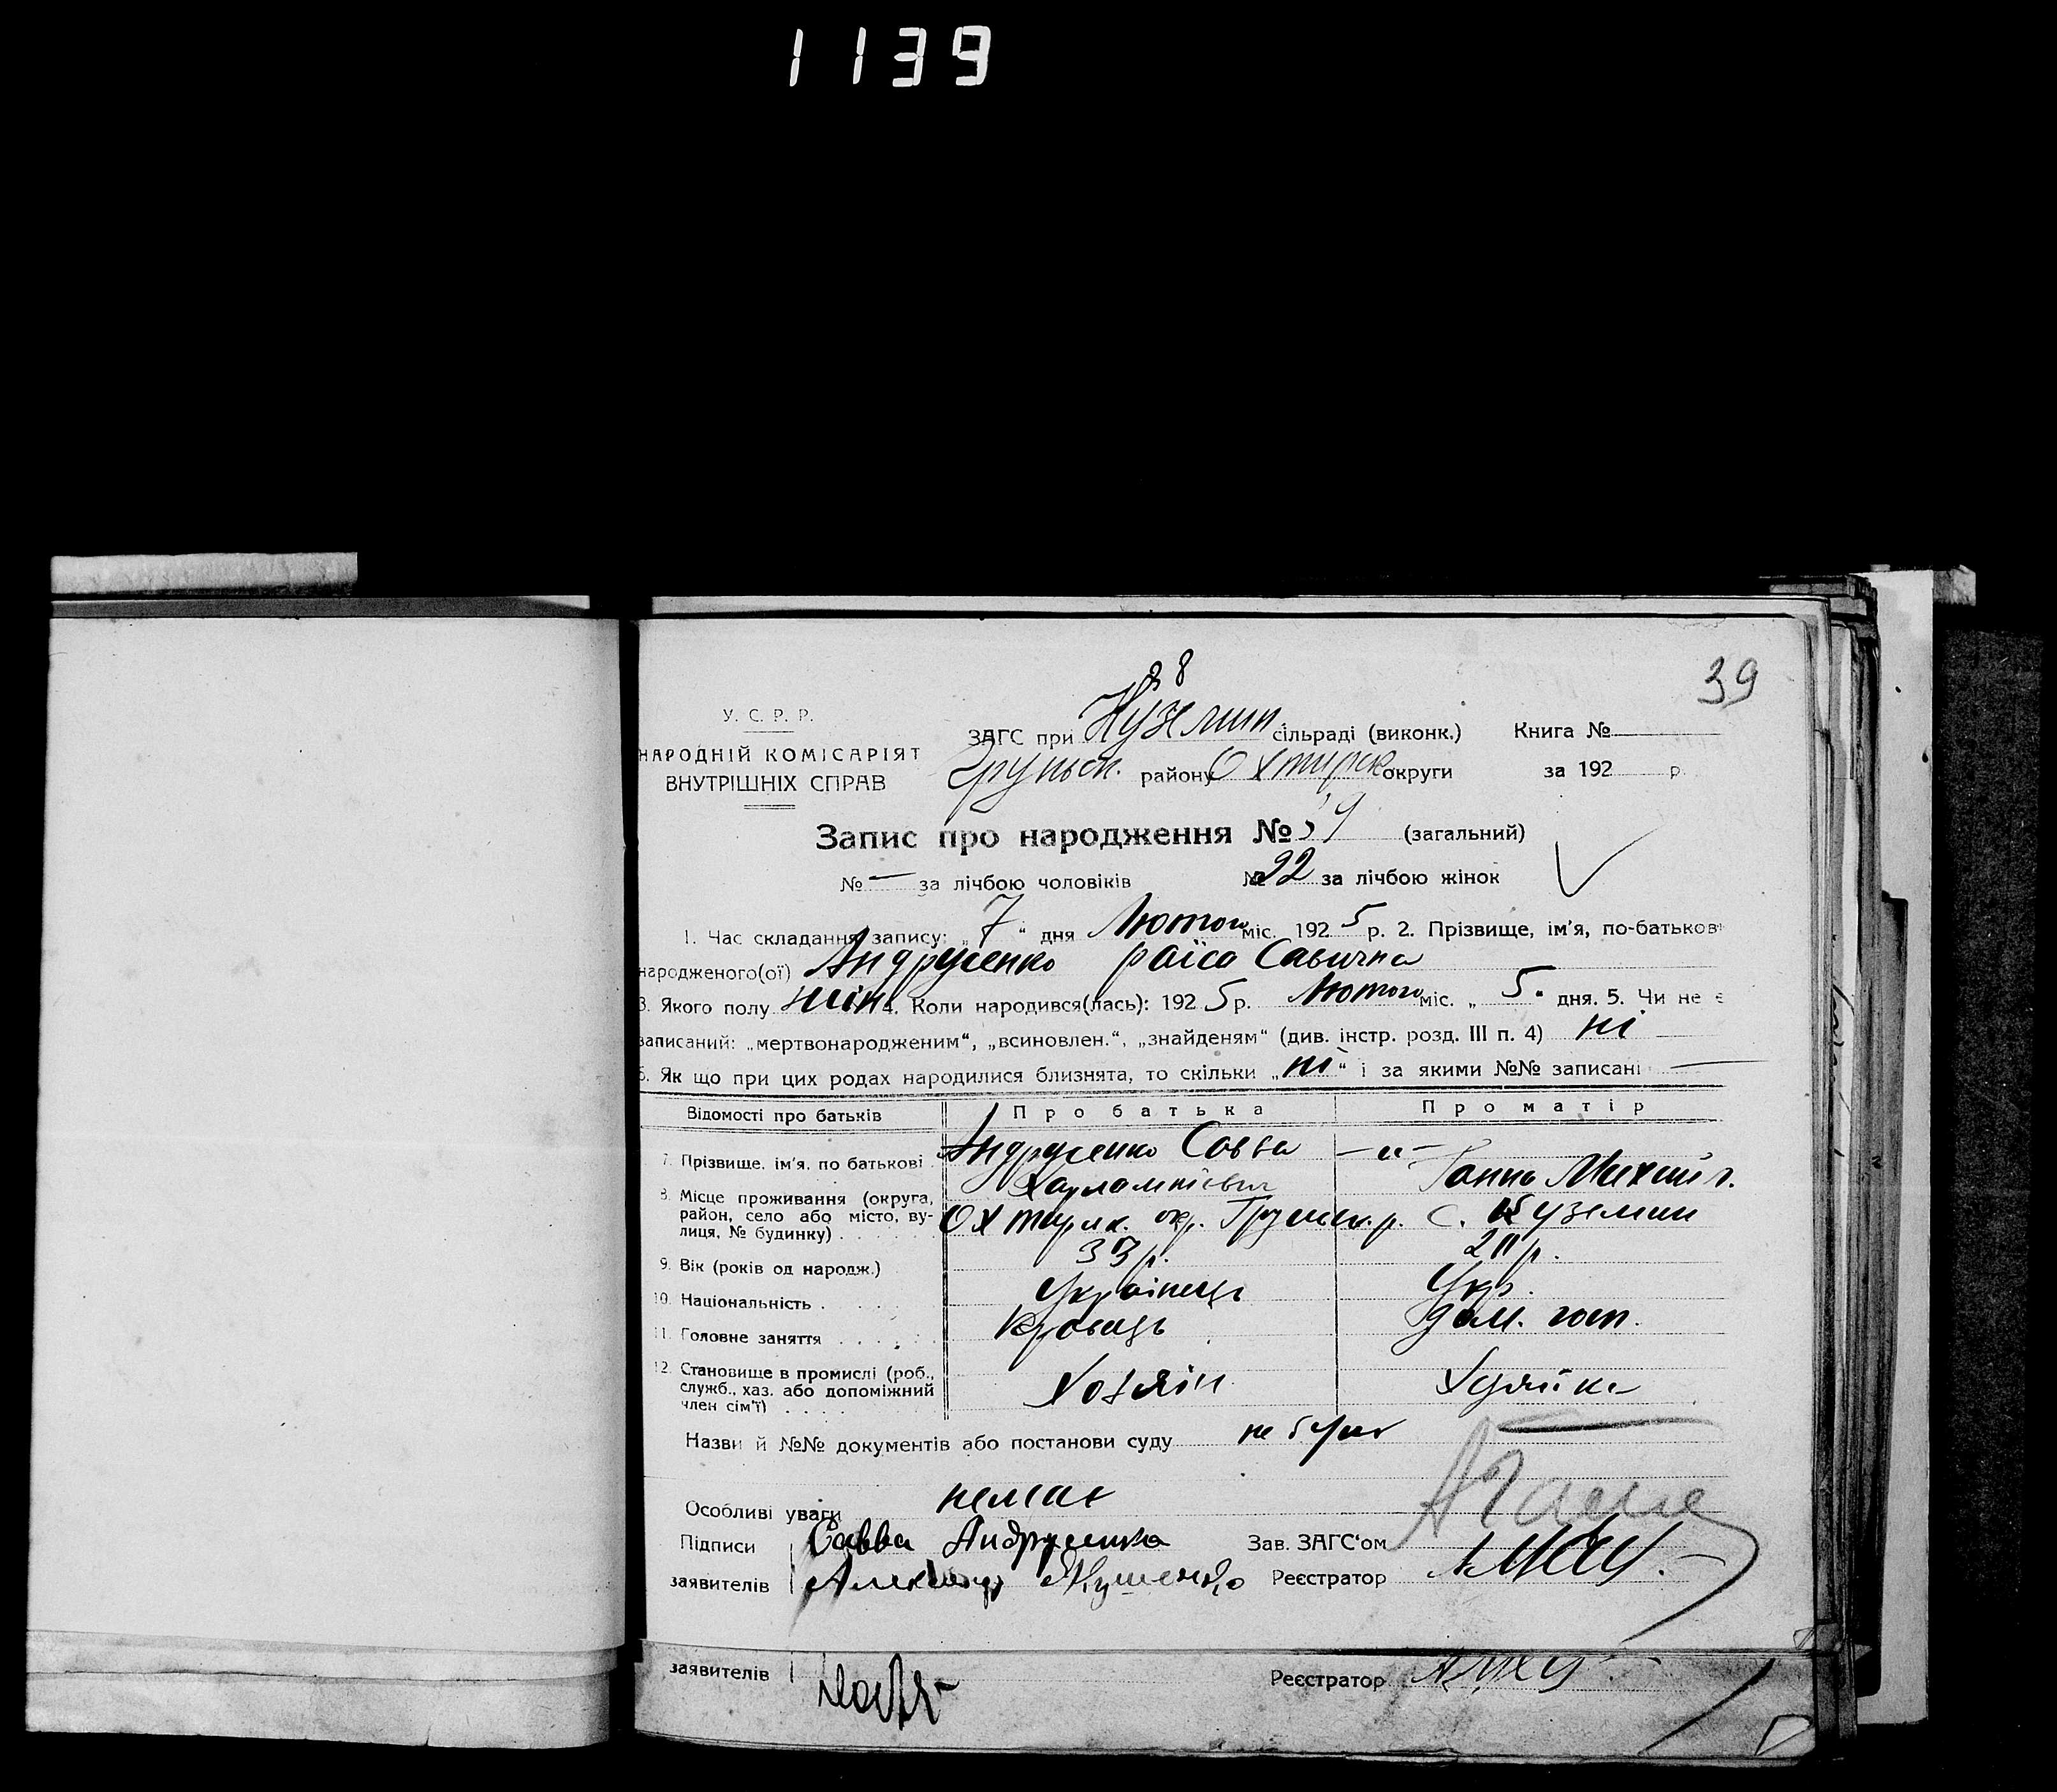 1139
38
39
У. С. Р. Р.
НАРОДНІЙ КОМІСАРІЯТ
ВНУТРІШНІХ СПРАВ
ЗАГС при Куземин. сільраді (виконк.) Книга №
Груньск. району Охтирск. округи за 192 р.
Запис про народження № 39 (загальний)
№ — за лічбою чоловіків № 22 за лічбою жінок
1. Час складання запису: „7“ дня Лютого міс. 1925 р. 2. Прізвище, ім'я, по-батькові
народженого(ої) Андрусенко раїса Савична
3. Якого полу жін 4. Коли народився(лась): 1925 р. Лютого міс. „5“ дня. 5. Чи не є
записаний: „мертвонародженим“, „всиновлен.“, „знайденям“ (див. інстр. розд. III п. 4) ні
6. Як що при цих родах народилися близнята, то скільки „ні“ і за якими №№ записані —
Відомості про батьків Про батька Про матір
7. Прізвище, ім'я, по батькові Андрусенко Савва —„—
Харлампієвич Ганна Михайл.
8. Місце проживання (округа,
район, село або місто, ву-
лиця, № будинку) Охтирск. окр. Груньск. р. с. Куземин
9. Вік (років од народж.) 33 р.
10. Національність Українець Укр.
11. Головне заняття Кравець дом. госп.
12. Становище в промислі (роб.,
служб., хаз. або допоміжний
член сім'ї) Хозяїн Хазяйка
Назви й №№ документів або постанови суду не було
Особливі уваги немає
Підписи Савва Андрусенко Зав. ЗАГС'ом
заявителів Реєстратор
заявителів Реєстратор